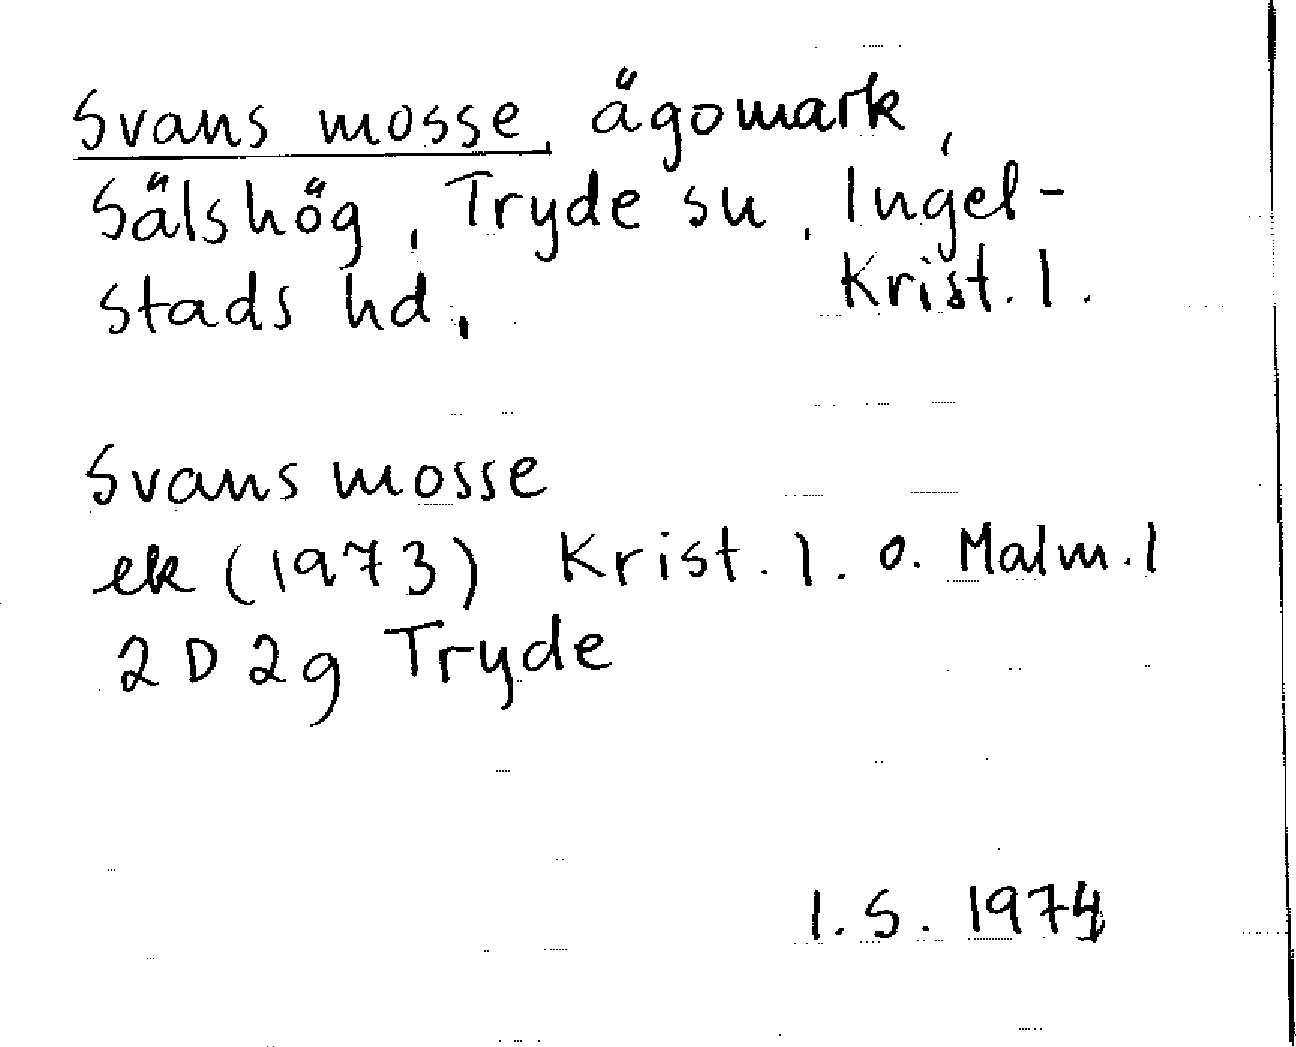 Svans mosse, ägomark,
Sälshög, Tryde sn, Ingel-
stads hd, Krist. l.
Svans mosse
ek (1973) Krist. l. o. Malm. l
2D 2g Tryde
I. S. 1974